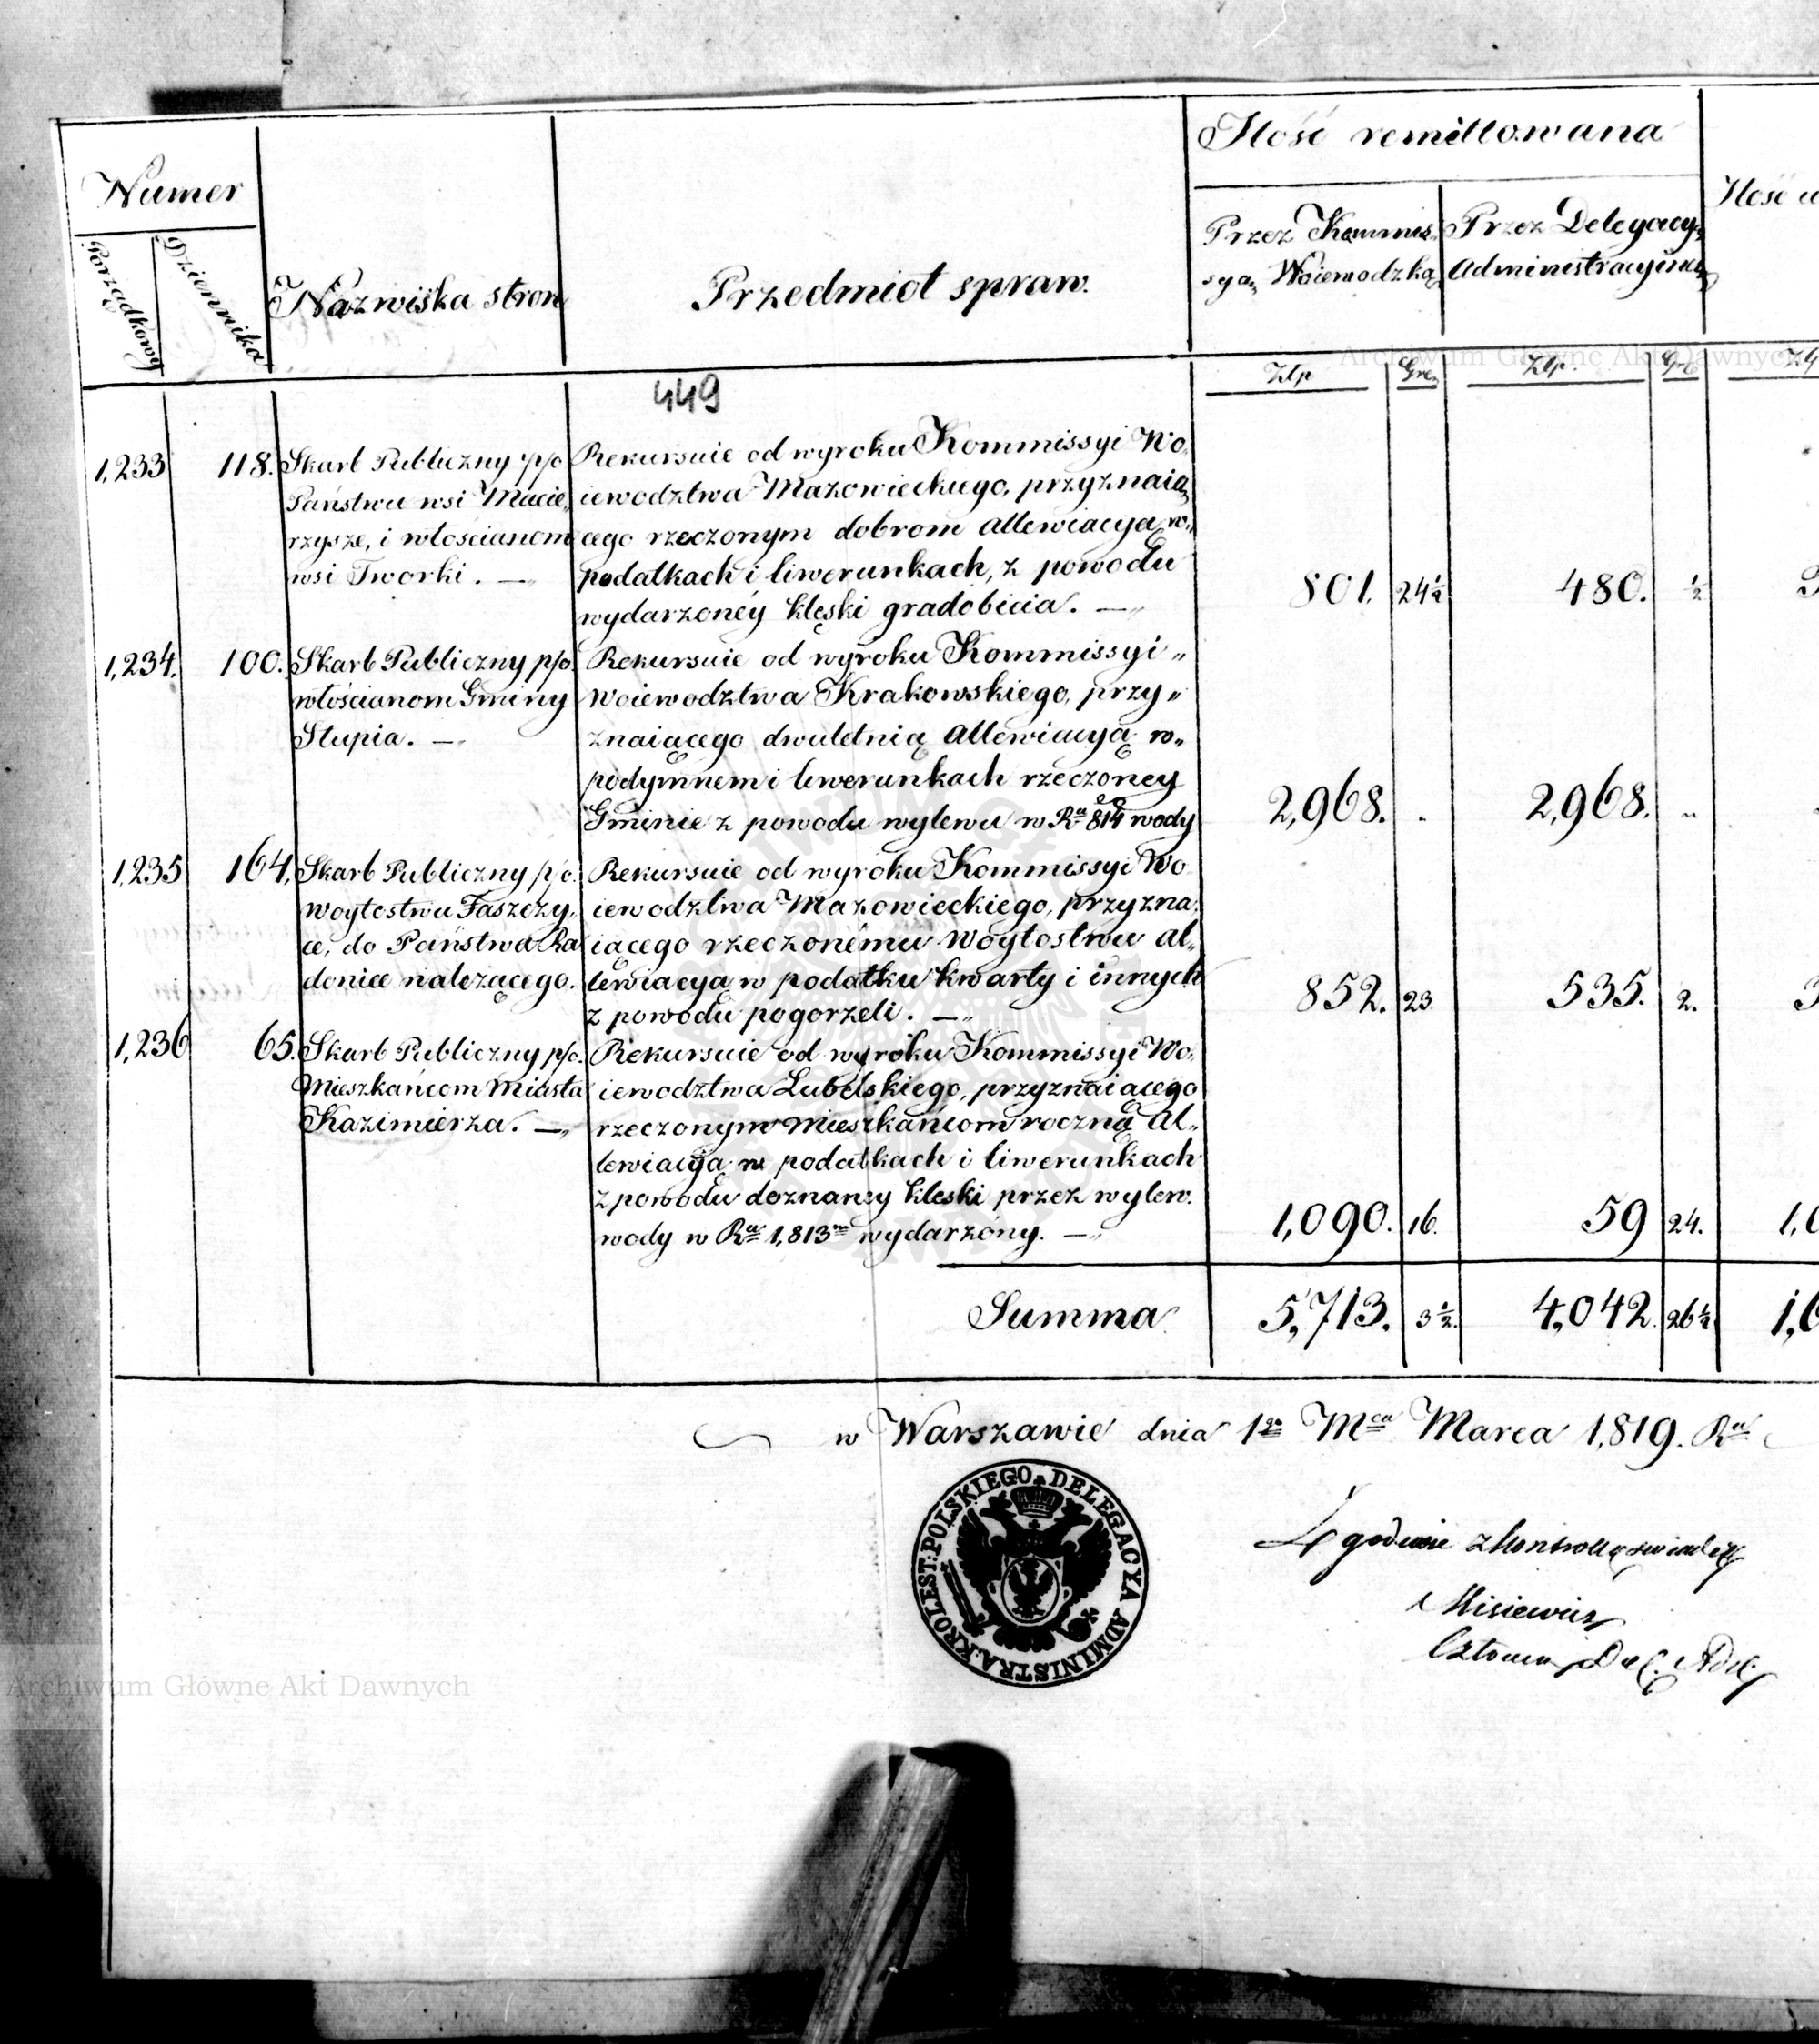 Numer
Porządkowy
Dziennika
Nazwiska stron
Przedmiot spraw.
Ilość remittowana
Przez Kommis„
syą Woiewodzką
Przez Delegacyą
Administracyiną
Ilość u
Złp
Gr.
Złp.
Gr.
Archiwum Główne Akt Dawnych
449
1,233
118.
Skarb Publiczny p/o
Państwu wsi Macie„
rzysze, i włościanom
wsi Tworki. —
Rekursuie od wyroku Kommissyi Wo„
iewodztwa Mazowieckiego, przyznaią
cego rzeczonym dobrom allewiacyą w„
podatkach i liwerunkach, z powodu
wydarzonéy klęski gradobicia. —
801.
24½
480.
½
1,234.
100.
Skarb Publiczny p/o.
włościanom Gminy
Słupia. —
Rekursuie od wyroku Kommissyi „
Woiewodztwa Krakowskiego, przy„
znaiącego dwuletnią allewiacyą w„
podymnem i lewerunkach rzeczoney
Gminie z powodu wylewu w Ru 814 wody
2,968.
2,968.
1,235
164.
Skarb Publiczny p/o.
Woytostwu Faszczy„
ce, do Państwa Ra
donice należącego.
Rekursuie od wyroku Kommissyi Wo
iewodztwa Mazowieckiego, przyzna„
iącego rzeczonému Woytostwu al„
lewiacyą w podatku kwarty i innych
z powodu pogorzeli. —
852.
23.
535.
2.
1,236
65.
Skarb Publiczny p/o.
Mieszkańcom Miasta
Kazimierza. —
Rekursuie od wyroku Kommissyi Wo„
iewodztwa Lubelskiego, przyznaiącego
rzeczonym mieszkańcom roczną al„
lewiacyą w podatkach i liwerunkach
z powodu doznaney kleski przez wylew.
wody w Ru 1,813m wydarzony. —
1,090.
16.
59
24.
Summa
5,713.
3½.
4,042.
26½
w Warszawie dnia 1go Mca Marca 1,819. Ru
KROLEST: POLSKIEGO. DELEGACYA ADMINISTRA:
Zgodnie z kontrollą świadczę
Misiewicz
Członek Del. Adm.
Archiwum Główne Akt Dawnych